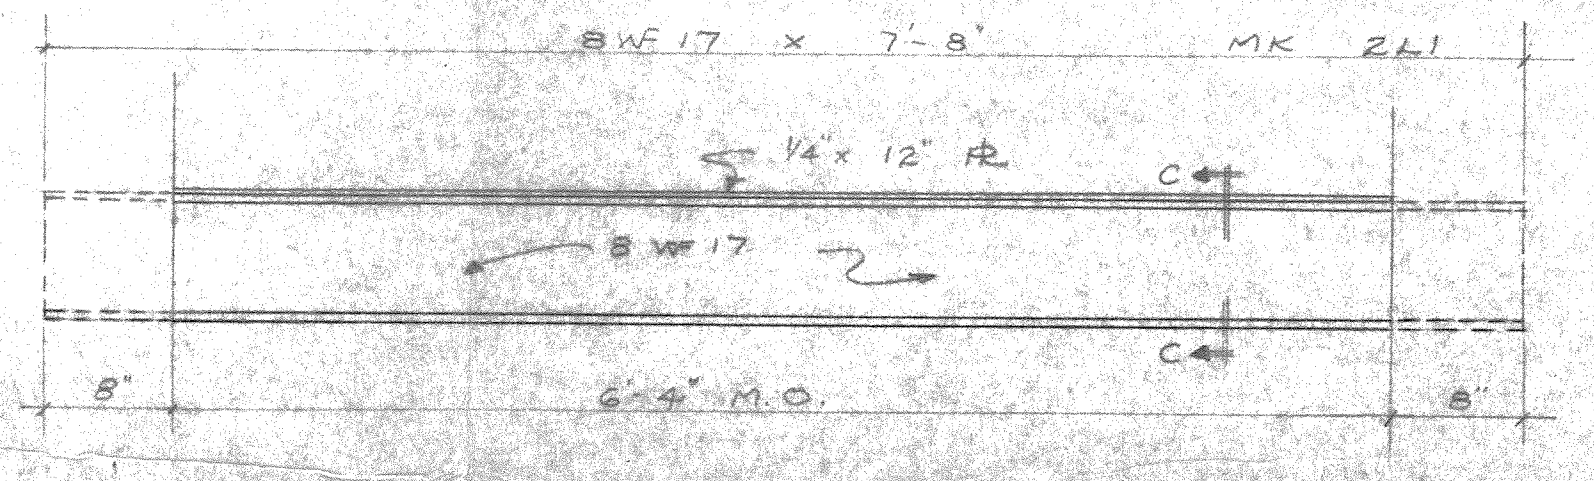 8 WF 17 x 7'-8" MK 2L1
1/4" x 12" PL
C
8 WF 17
C
8" 6'-4" M.O. 8"